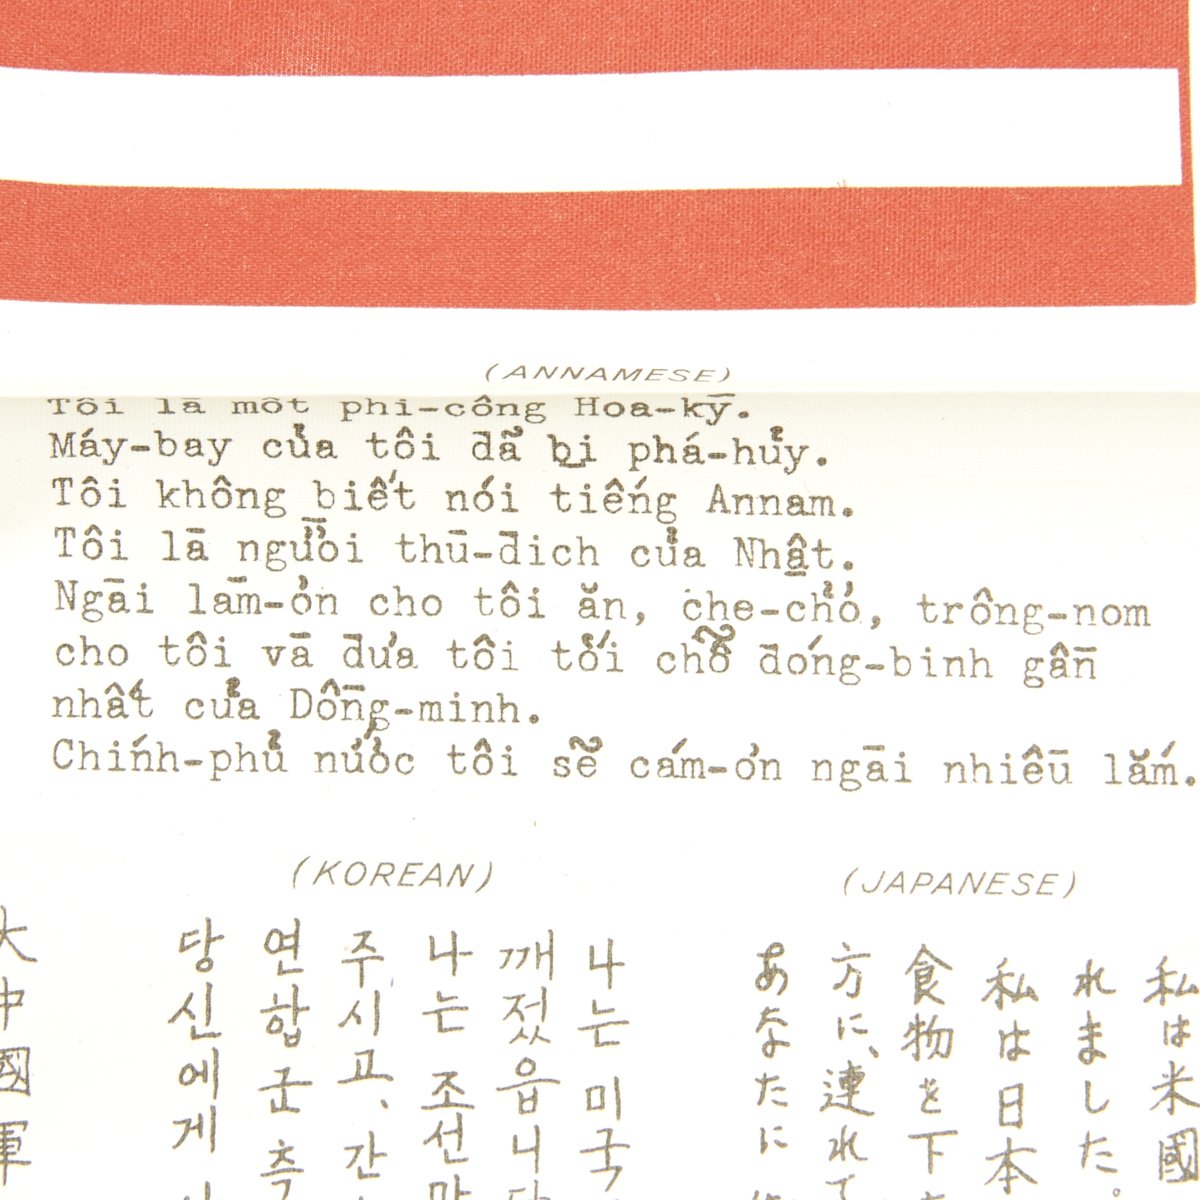 (ANNAMESE)
Tôi là một phi-công Hoa-kỳ.
Máy-bay của tôi đã bị phá-hủy.
Tôi không biết nói tiếng Annam.
Tôi là người thù-đich của Nhật.
Ngài làm-ơn cho tôi ăn, che-chở, trông-nom
cho tôi và đưa tôi tới chỗ đóng-binh gần
nhất của Đồng-minh.
Chính-phủ nước tôi sẽ cám-ơn ngài nhiều lắm.
(KOREAN)
나는 미국
깨졌읍니다
나는 조선말
주시고、간
연합군 측
당신에게
(JAPANESE)
私は米國
れました。
私は日本
食物を下
方に、連れて
あなたに
大中國軍